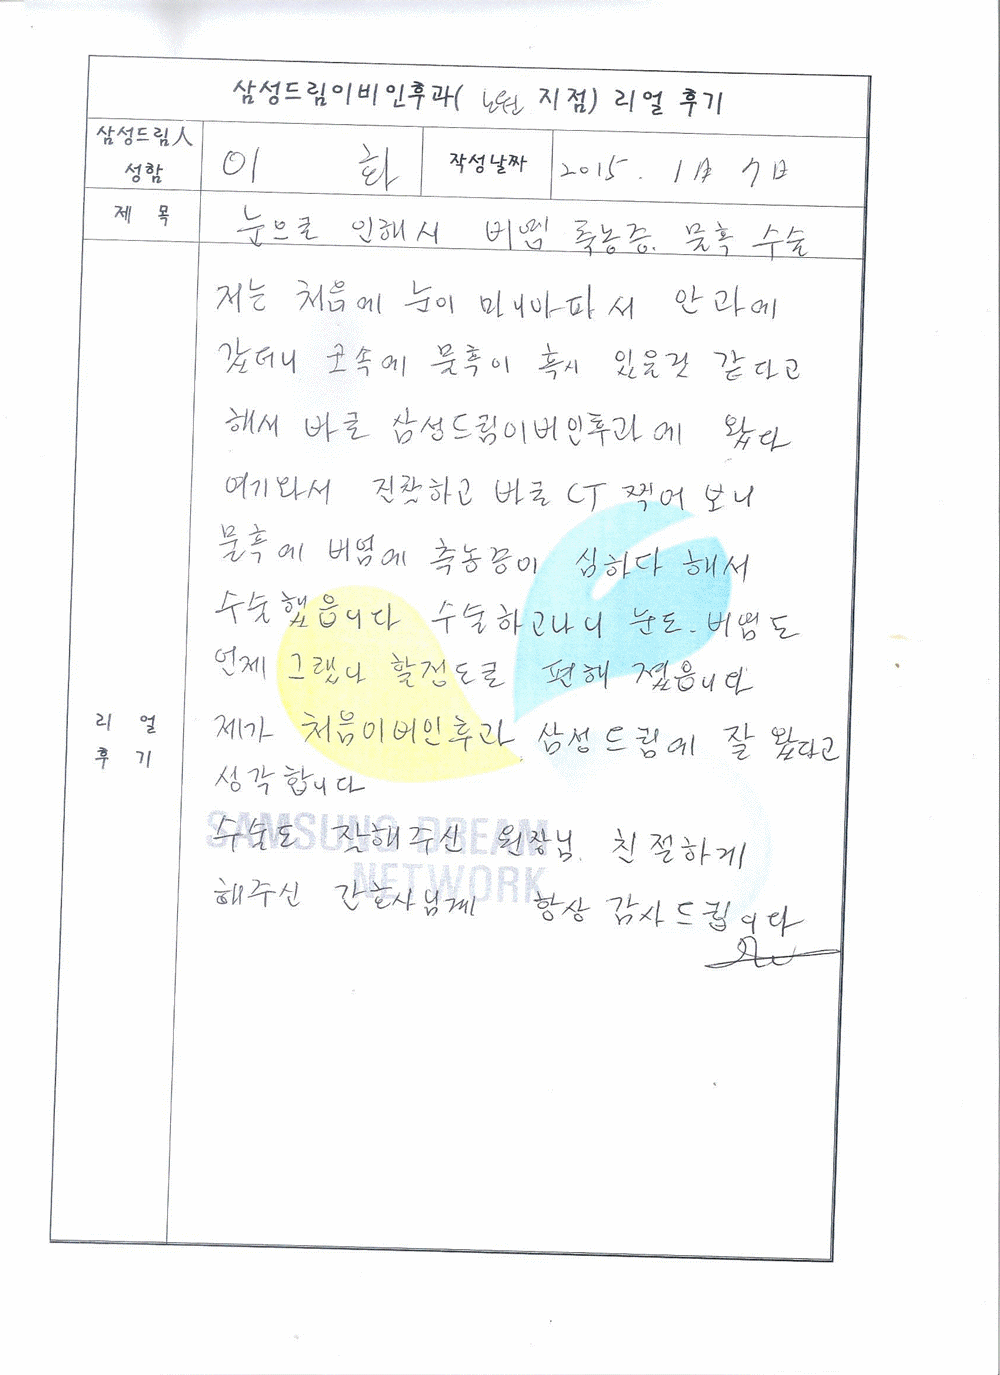 삼성드림이비인후과( 노원 지점) 리얼 후기
삼성드림人
성함
이 화
작성날짜
2015. 1月 7日
제 목
눈으로 인해서 비염 축농증. 물혹 수술
저는 처음에 눈이 마니아파서 안과에
갔더니 코속에 물혹이 혹시 있을것 같다고
해서 바로 삼성드림이비인후과에 왔다
여기와서 진찰하고 바로 CT 찍어 보니
물혹에 비염에 축농증이 심하다 해서
수술했읍니다 수술하고나니 눈도. 비염도
언제 그랬나 할정도로 편해 졌읍니다
리 얼
후 기
제가 처음이비인후과 삼성드림에 잘 왔다고
성각합니다
수술도 잘해주신 원장님. 친절하게
해주신 간호사님께 항상 감사드립니다
SAMSUNG DREAM
NETWORK